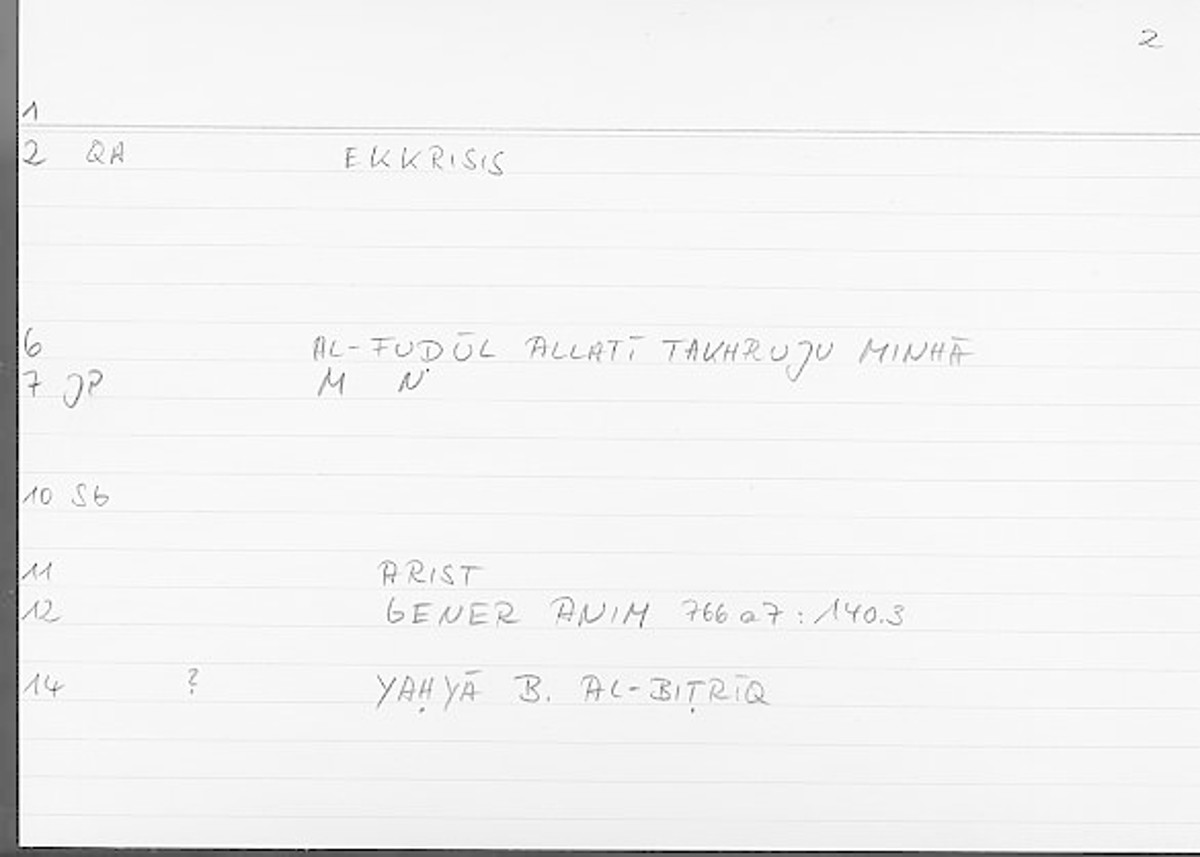 2
1
2 QA EKKRISIS
6 AL-FUḌŪL ALLATĪ TAKHRUJU MINHĀ
7 JP M N
10 SG
11 ARIST
12 GENER ANIM 766a7:140.3
14 ? YAḤYĀ B. AL-BIṬRĪQ